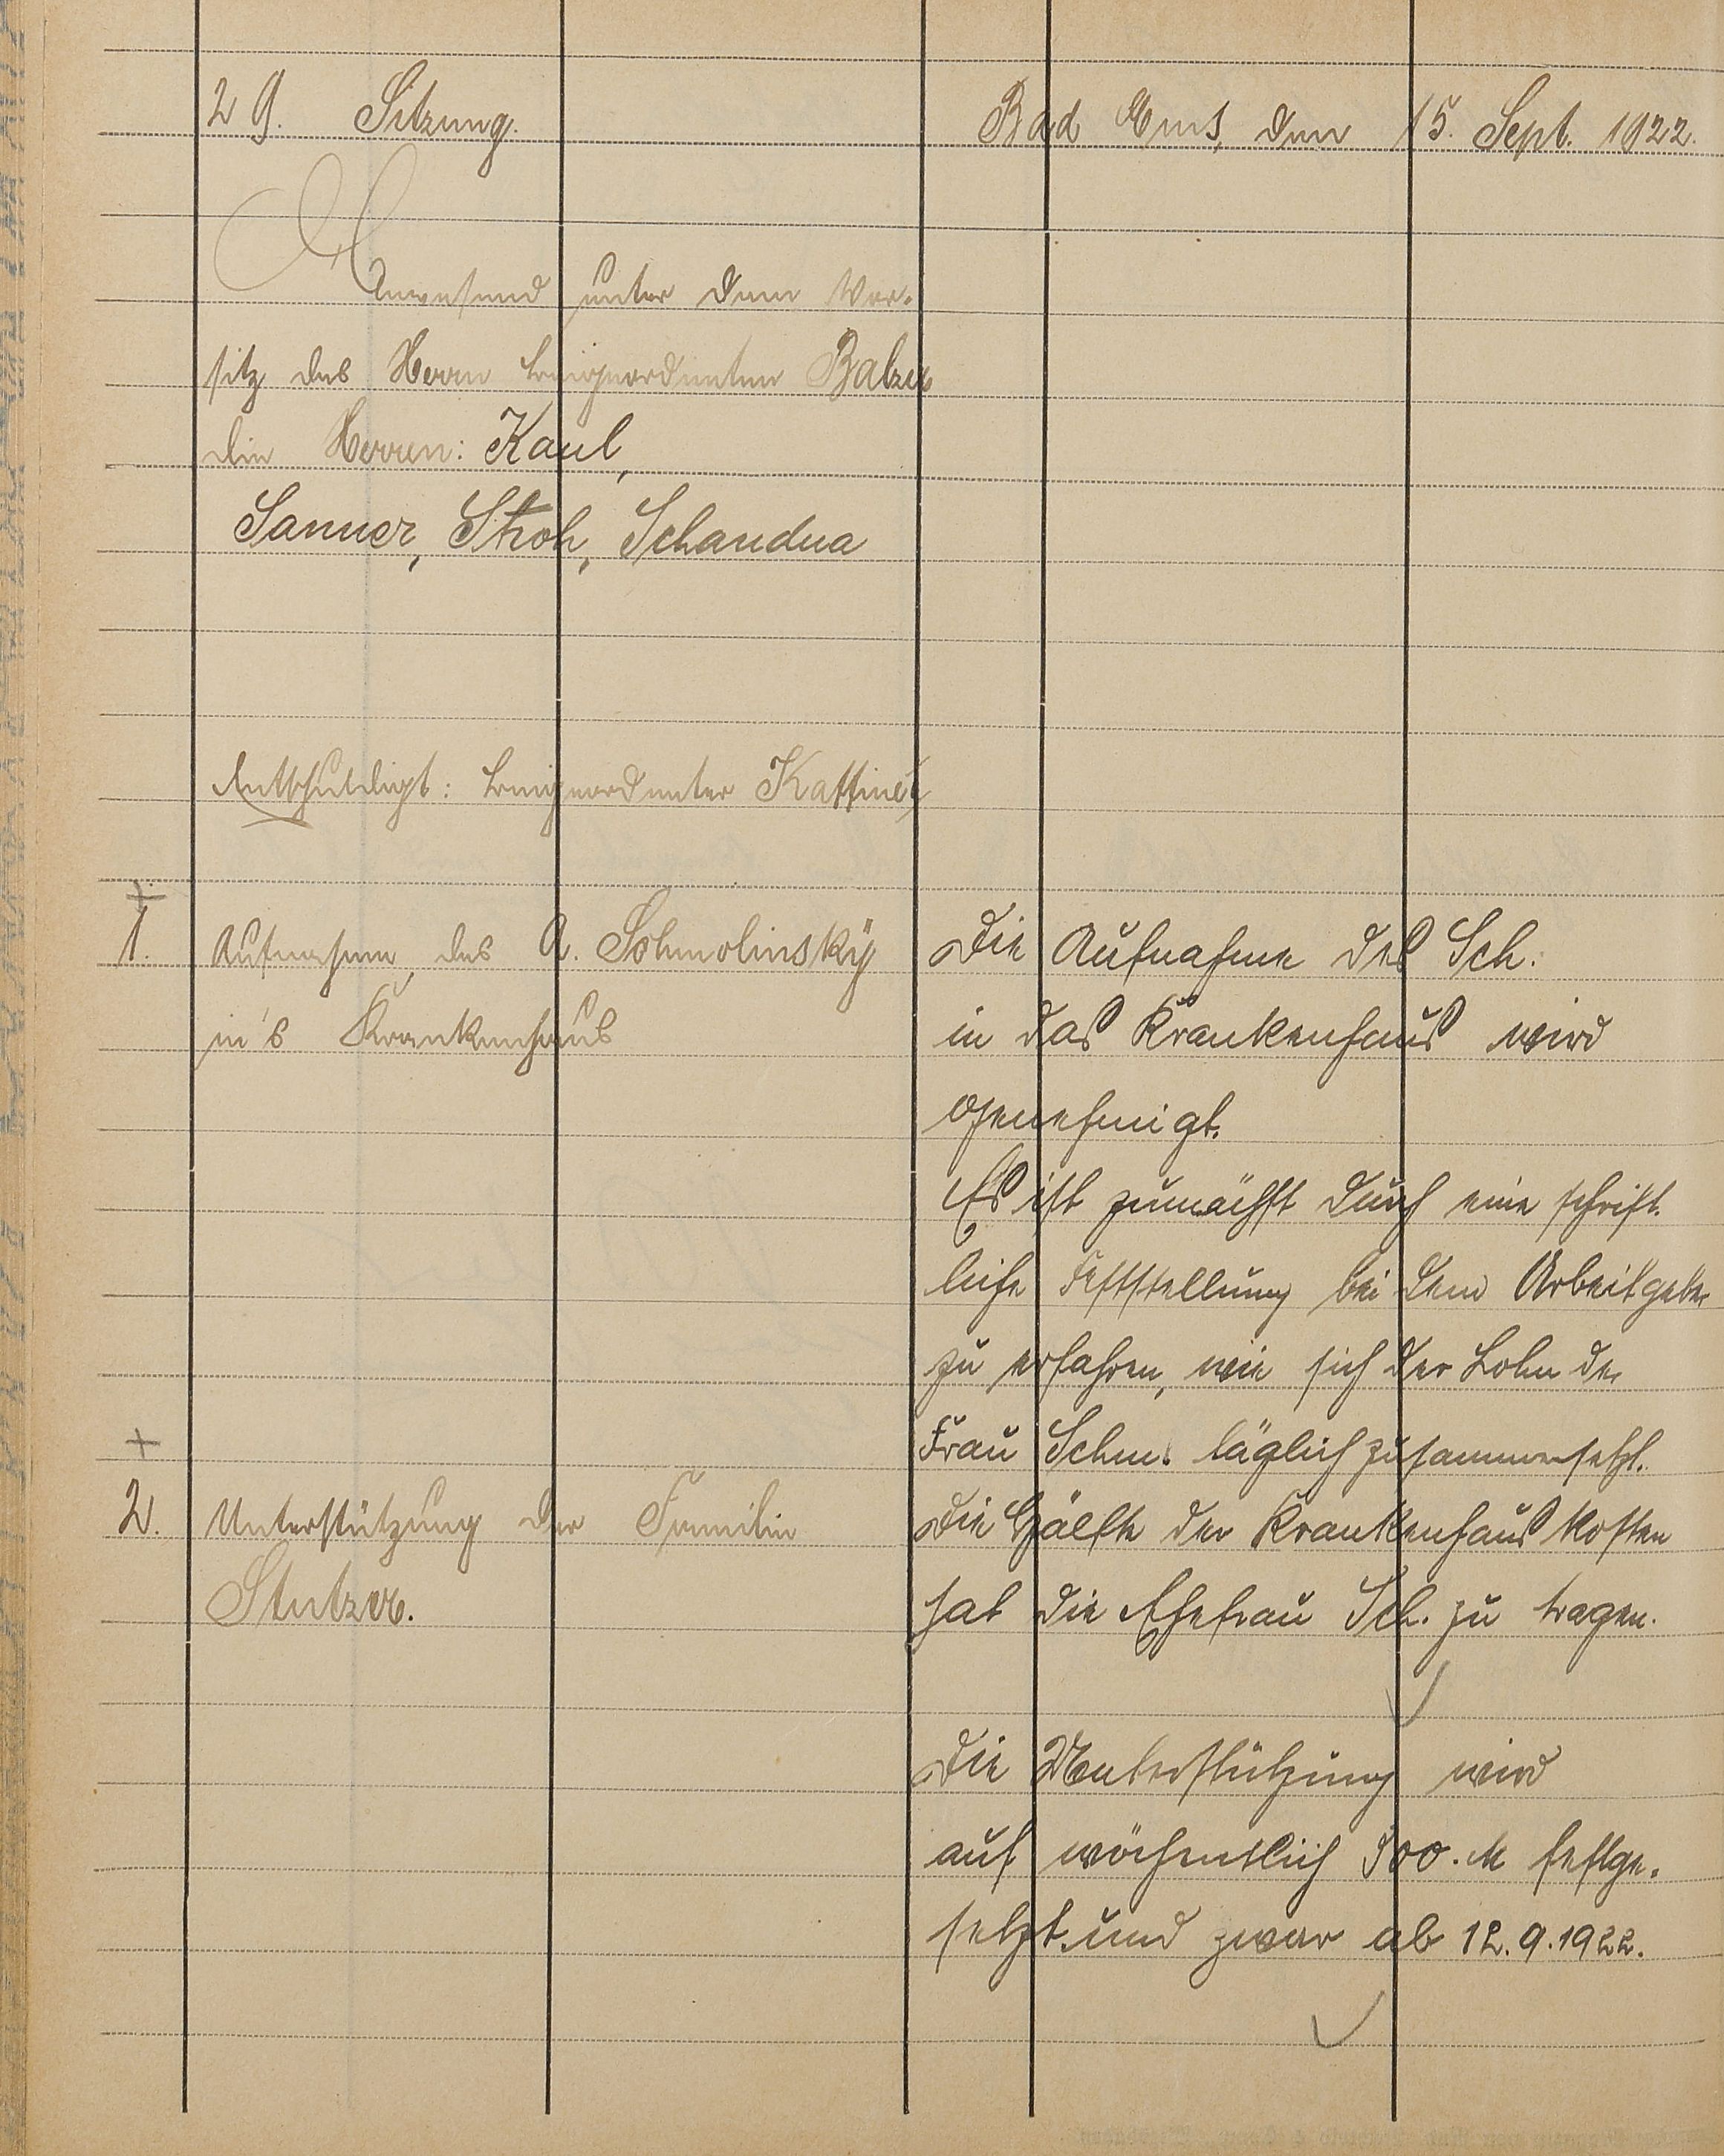 29. Sitzung.
Bad Ems, den 15. Sept. 1922.
Anwesend unter dem Vor-
sitz des Herrn Beigeordneten Balzer
die Herren: Kaul,
Sanner, Stroh, Schandua
Entschuldigt: Beigeordneter Kattiné
1. Aufnahme des A. Schmolinsky
in's Krankenhaus
Die Aufnahme des Sch.
in das Krankenhaus wird
genehmigt.
Es ist zunächst durch eine schrift-
liche Feststellung bei dem Arbeitgeber
zu erfahren, wie sich der Lohn der
Frau Schm. täglich zusammensetzt.
Die Hälfte der Krankenhauskosten
hat die Ehefrau Sch. zu tragen.
2. Unterstützung der Familie
Stutzer.
Die Unterstützung wird
auf wöchentlich 500. M festge-
setzt. und zwar ab 12.9.1922.